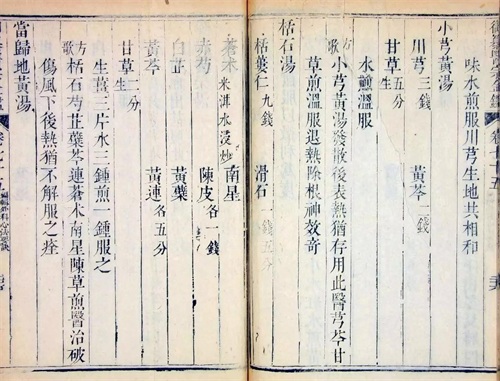 味水煎服川芎生地共相和
小芎黃湯
川芎三錢 黃芩二錢
甘草五分 生
水煎溫服
方歌 小芎黃湯發散後表熱猶存用此醫芎芩甘
草煎溫服退熱除根神效奇
栝石湯
栝蔞仁九錢 滑石
蒼朮米泔水浸炒 南星
赤芍 陳皮各一錢
白芷 黃蘗
黃芩 黃連各五分
甘草二分 生
生薑三片水三鍾煎一鍾服之
方歌 栝石芍芷蘗芩連蒼朮南星陳草煎醫治破
傷風下後熱猶不解服之痊
當歸地黃湯